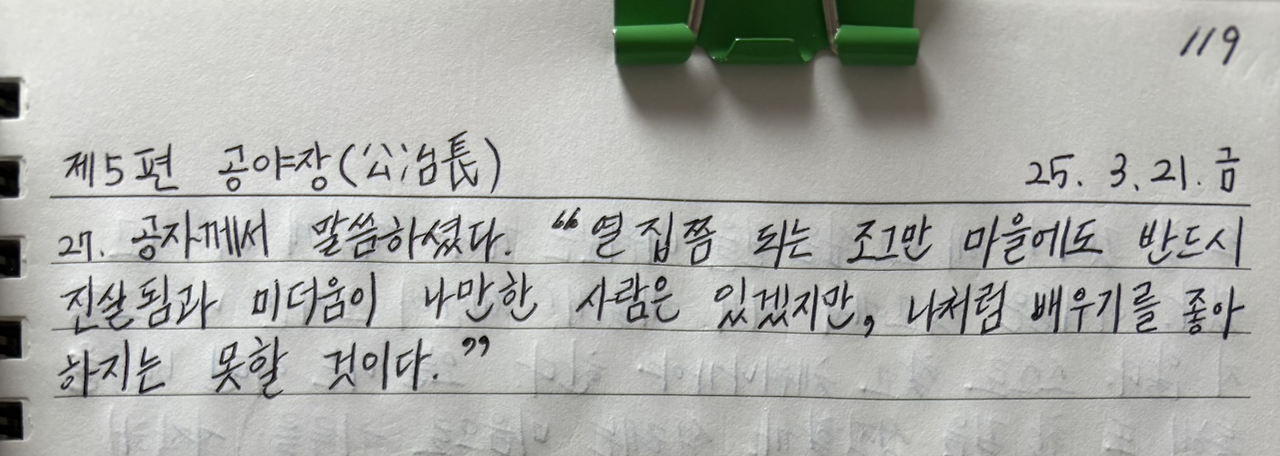 119
제5편 공야장(公冶長) 25. 3. 21. 금
27. 공자께서 말씀하셨다. “열 집쯤 되는 조그만 마을에도 반드시
진실됨과 미더움이 나만한 사람은 있겠지만, 나처럼 배우기를 좋아
하지는 못할 것이다.”